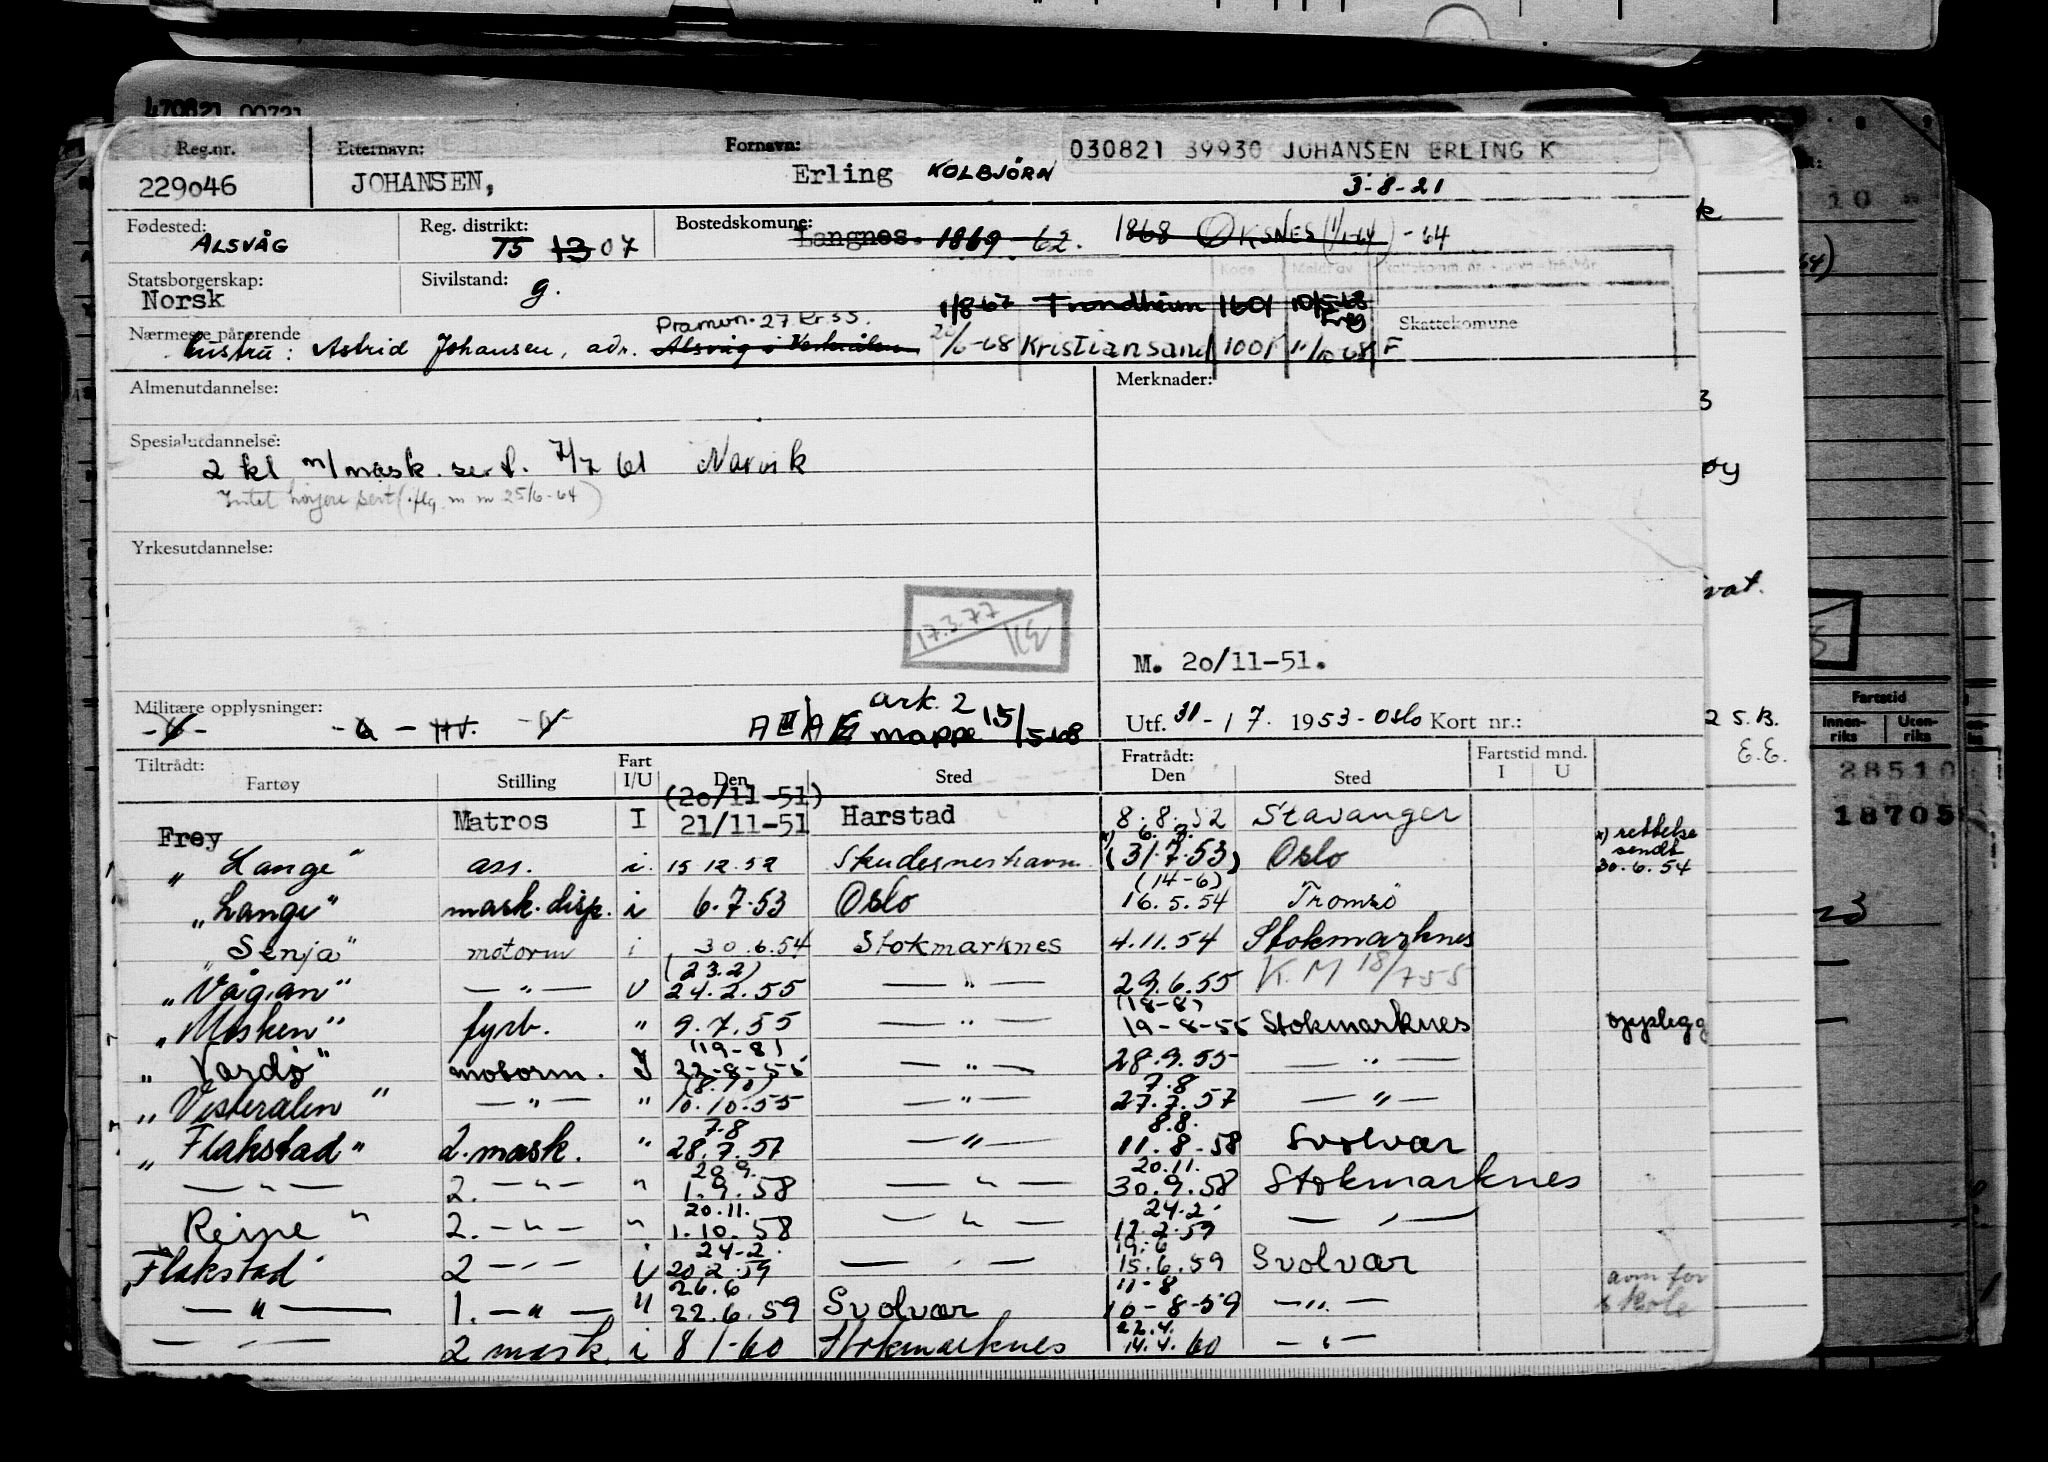 470821 00721
Reg.nr. Etternavn: Fornavn: 030821 39930 JOHANSEN ERLING K
229046 JOHANSEN, Erling KOLBJÖRN 3-8-21
Fødested: Reg. distrikt: Bostedskomune:
ALSVÅG T5 13 07 Langnes. 1869 - 62. 1868 ØKSNES (1/1-64) - 64
Statsborgerskap: Sivilstand:
Norsk g.
1/8-67 Trondheim 1601 10/5-68
Nærmeste pårørende Pramvn. 27 Kr.ss. Skattekomune
hustru: Astrid Johansen, adr. Alsvåg i Vesterålen 20/6-68 Kristiansand 1001 11/10 68 F
Almenutdannelse: Merknader:
Spesialutdannelse:
2 kl m/mask. sert. 7/7 61 Narvik
Intet høyere sert (iflg. m m 25/6-64)
Yrkesutdannelse:
17.3.77
M. 20/11-51.
Militære opplysninger: ark. 2
mappe 15/5-68 Utf. 31 - / 7. 1953 - Oslo Kort nr.:
Tiltrådt: Fratrådt: Fartstid mnd.
Fartøy Stilling Fart I/U Den Sted Den Sted I U
(20/11-51)
Frey Matros I 21/11-51 Harstad 8.8.52 Stavanger
x) 6.7. x) rettelse sendt 30.6.54
"Lange" ass. i. 15 12.52 Skudesneshavn (31.7.53) Oslo
(14-6)
"Lange" mask. disp. i 6.7.53 Oslo 16.5.54 Tromsö
"Senja" motorm i 30.6.54 Stokmarknes 4.11.54 Stokmarknes
(23.2)
"Vågan" — " — U 24.2.55 — " — 29.6.55 K.M 18/7 55
(18-8)
"Misken" fyrb. " 9.7.55 — " — 19-8-55 Stokmarknes opplegg
(19-8)
"Vardø" motorm. I 22-8-55 — " — 28.9.55 — " —
(8.10) 7.8
"Vesterålen" — " — " 10.10.55 — " — 27.7.57 — " —
7.8 8.8.
"Flakstad" 2. mask. " 28.7.57 — " — 11.8-58 Svolvær
20.9. 20.11.
— " — 2. — " — " 1.9.58 — " — 30.9.58 Stokmarknes
20.11. 24.2.
Reine " 2. — " — " 1.10.58 — " — 17.2.59 — " —
24-2. 19.6
"Flakstad" 2 — " — U 20.2.59 — " — 15.6.59 Svolvær
26.6 11-8
— " — 1. — " — " 22.6.59 Svolvær 10-8-59 — " — avm for skole
22.4.
— " — 2 mask. i 8 1-60 Stokmarknes 14.4.60 — " —
25.B.
E.E.
Fartstid
Innenriks Utenriks
28510
18705